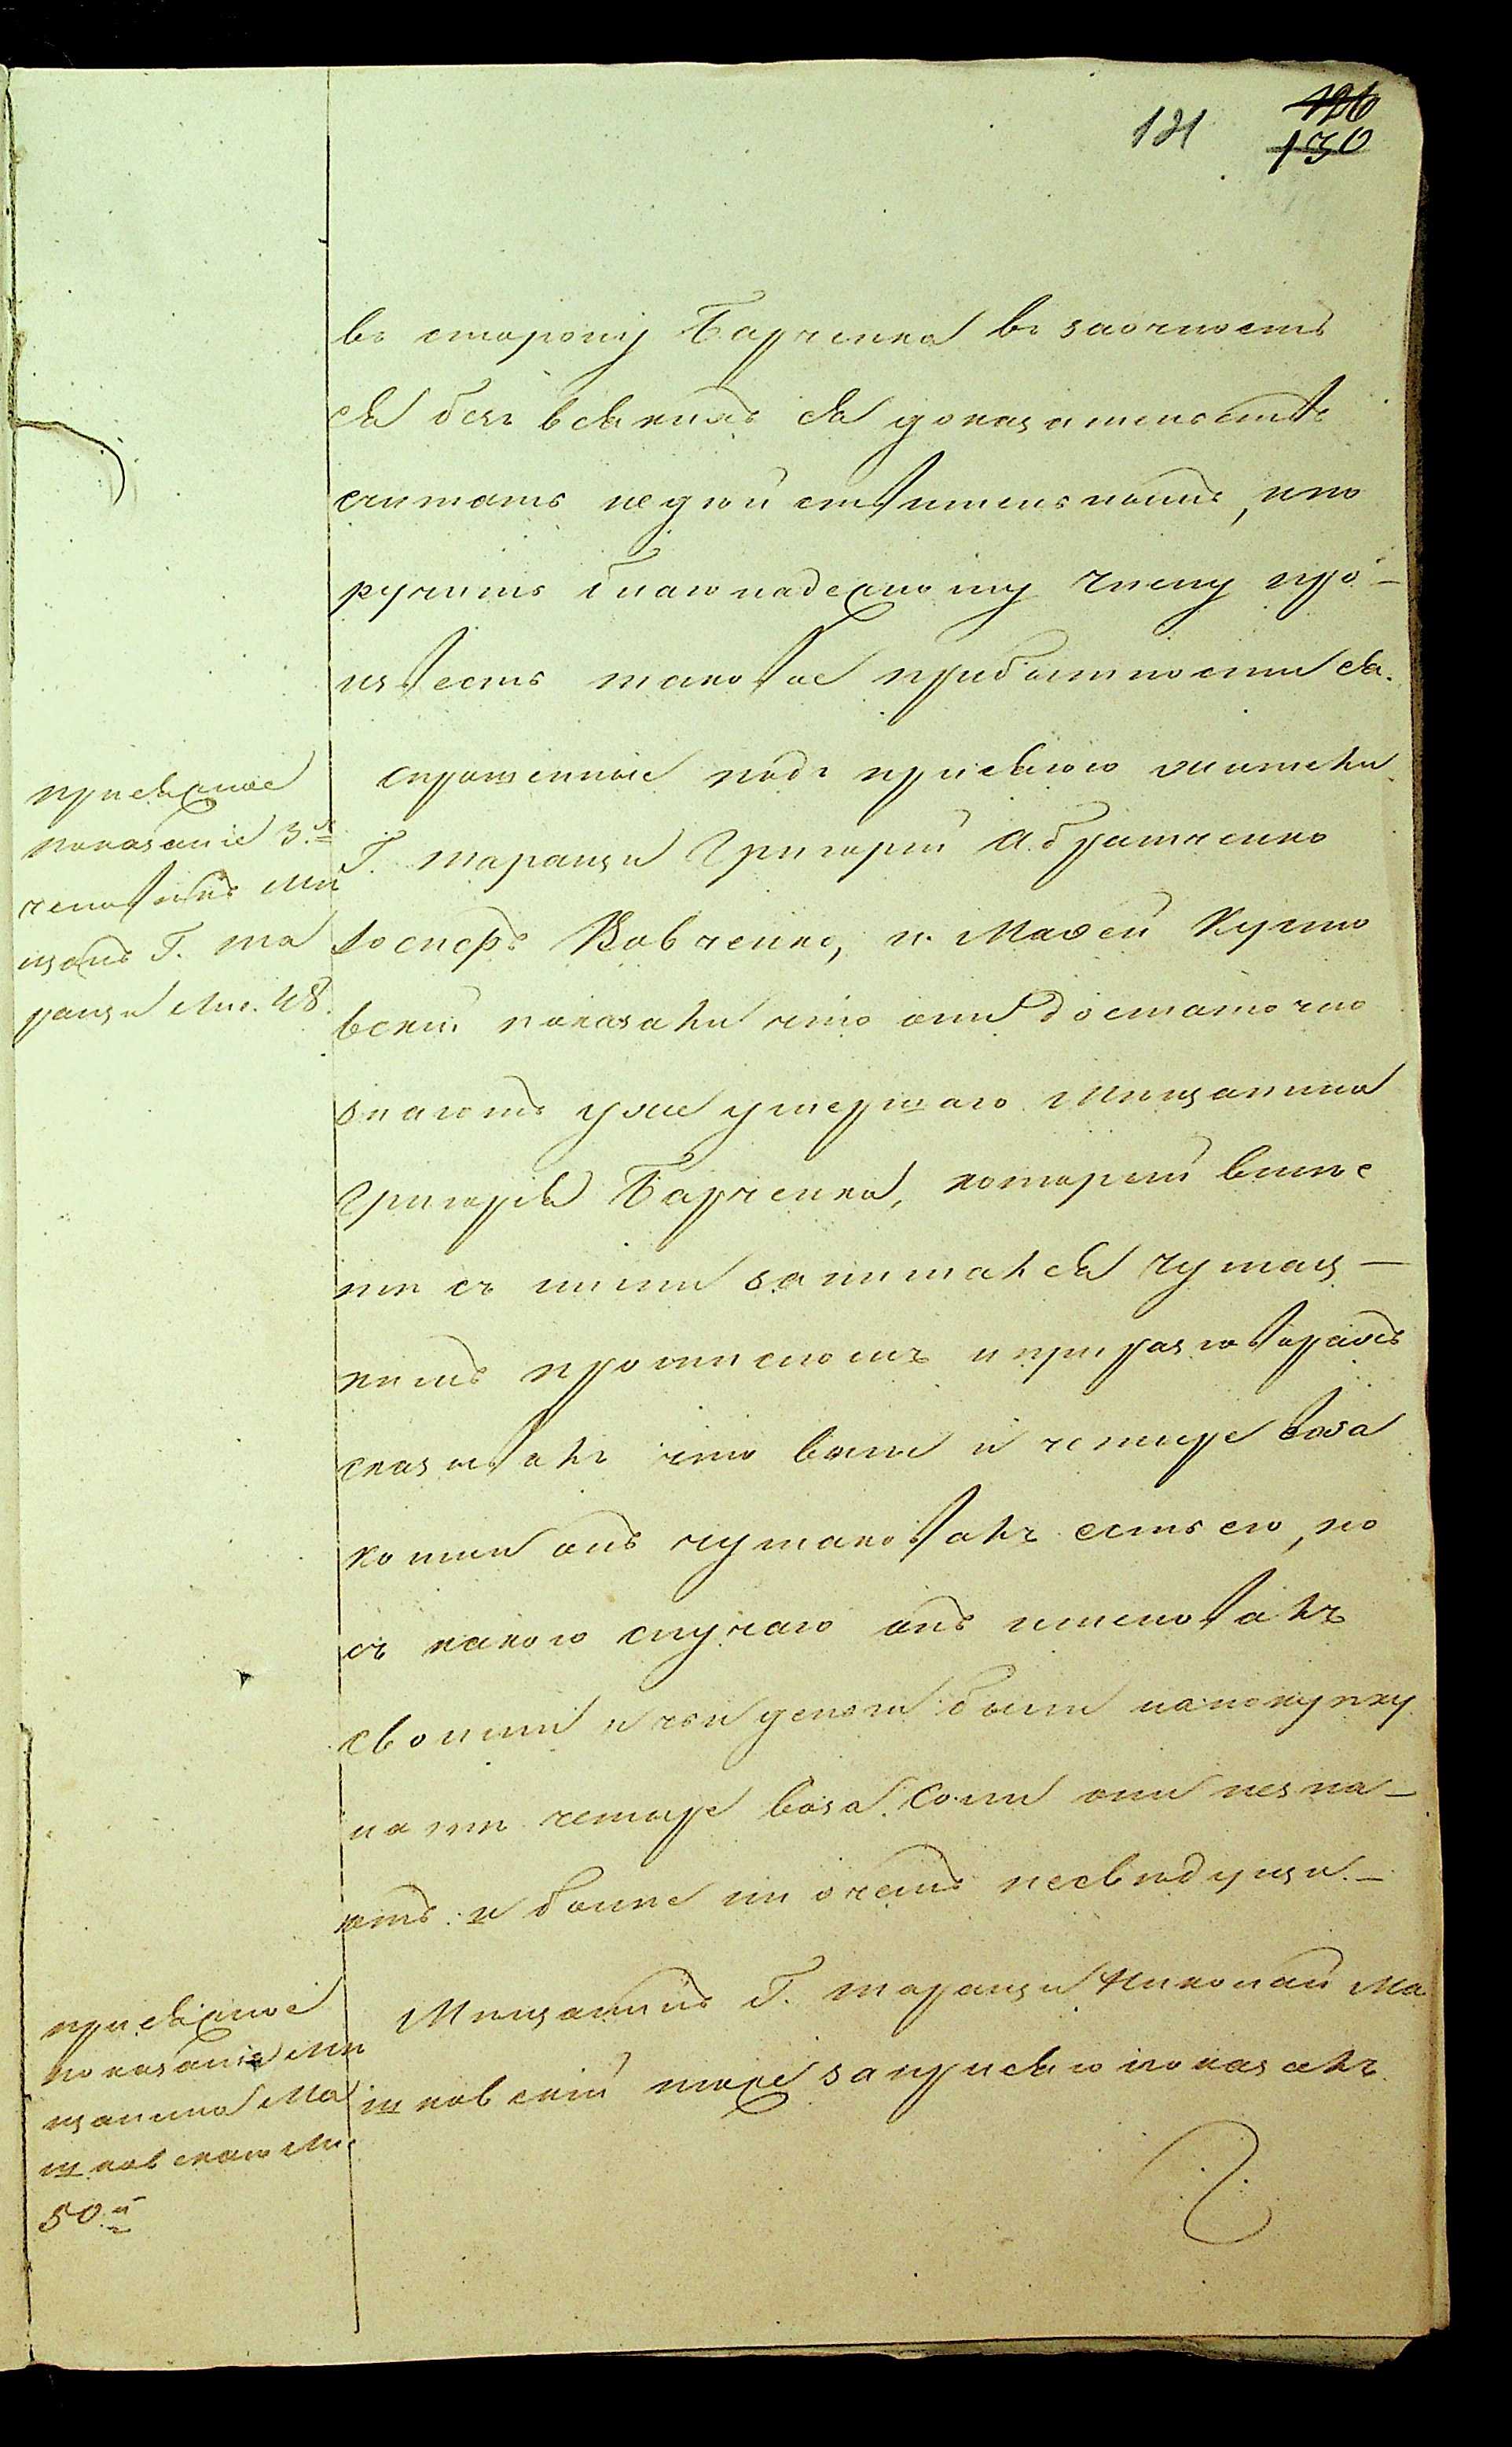 131
126
130
въ сторону Барченка въ заочность
ея безъ всякихъ ея доказательствъ
считать недѣйствительнымъ, и по
ручить благонадежному члену про-
известь таковое прибытности ея.
спрошенные подъ присягою жители
Г. таращи Григорій Абрамченко
Вовченко, и Мафей
вскій показали что они достаточно
знаютъ уже умершаго Мищанина
Григорія Барченка, который вмѣс
тѣ съ ними занимался чумац-
кимъ промысломъ и при разговорахъ
сказывалъ что волы и четыре воза
коими онъ чумаковалъ есть его, но
съ какого случаю онъ именовалъ
своими и чьи деньги были на покупку
на тѣ четыре воза соли они незна-
ютъ и болѣе ни о чемъ несвѣдущи.-
Мищанинъ Г. таращи Николай Ма
шковскій тоже заприсягою показалъ
присяжное
показаніе 3.х
человѣкъ Мѣ
щанъ Г. та
ращи лис. 48.
присяжное
показаніе Мѣ
щанина Ма
шковскаго Лис
50.й